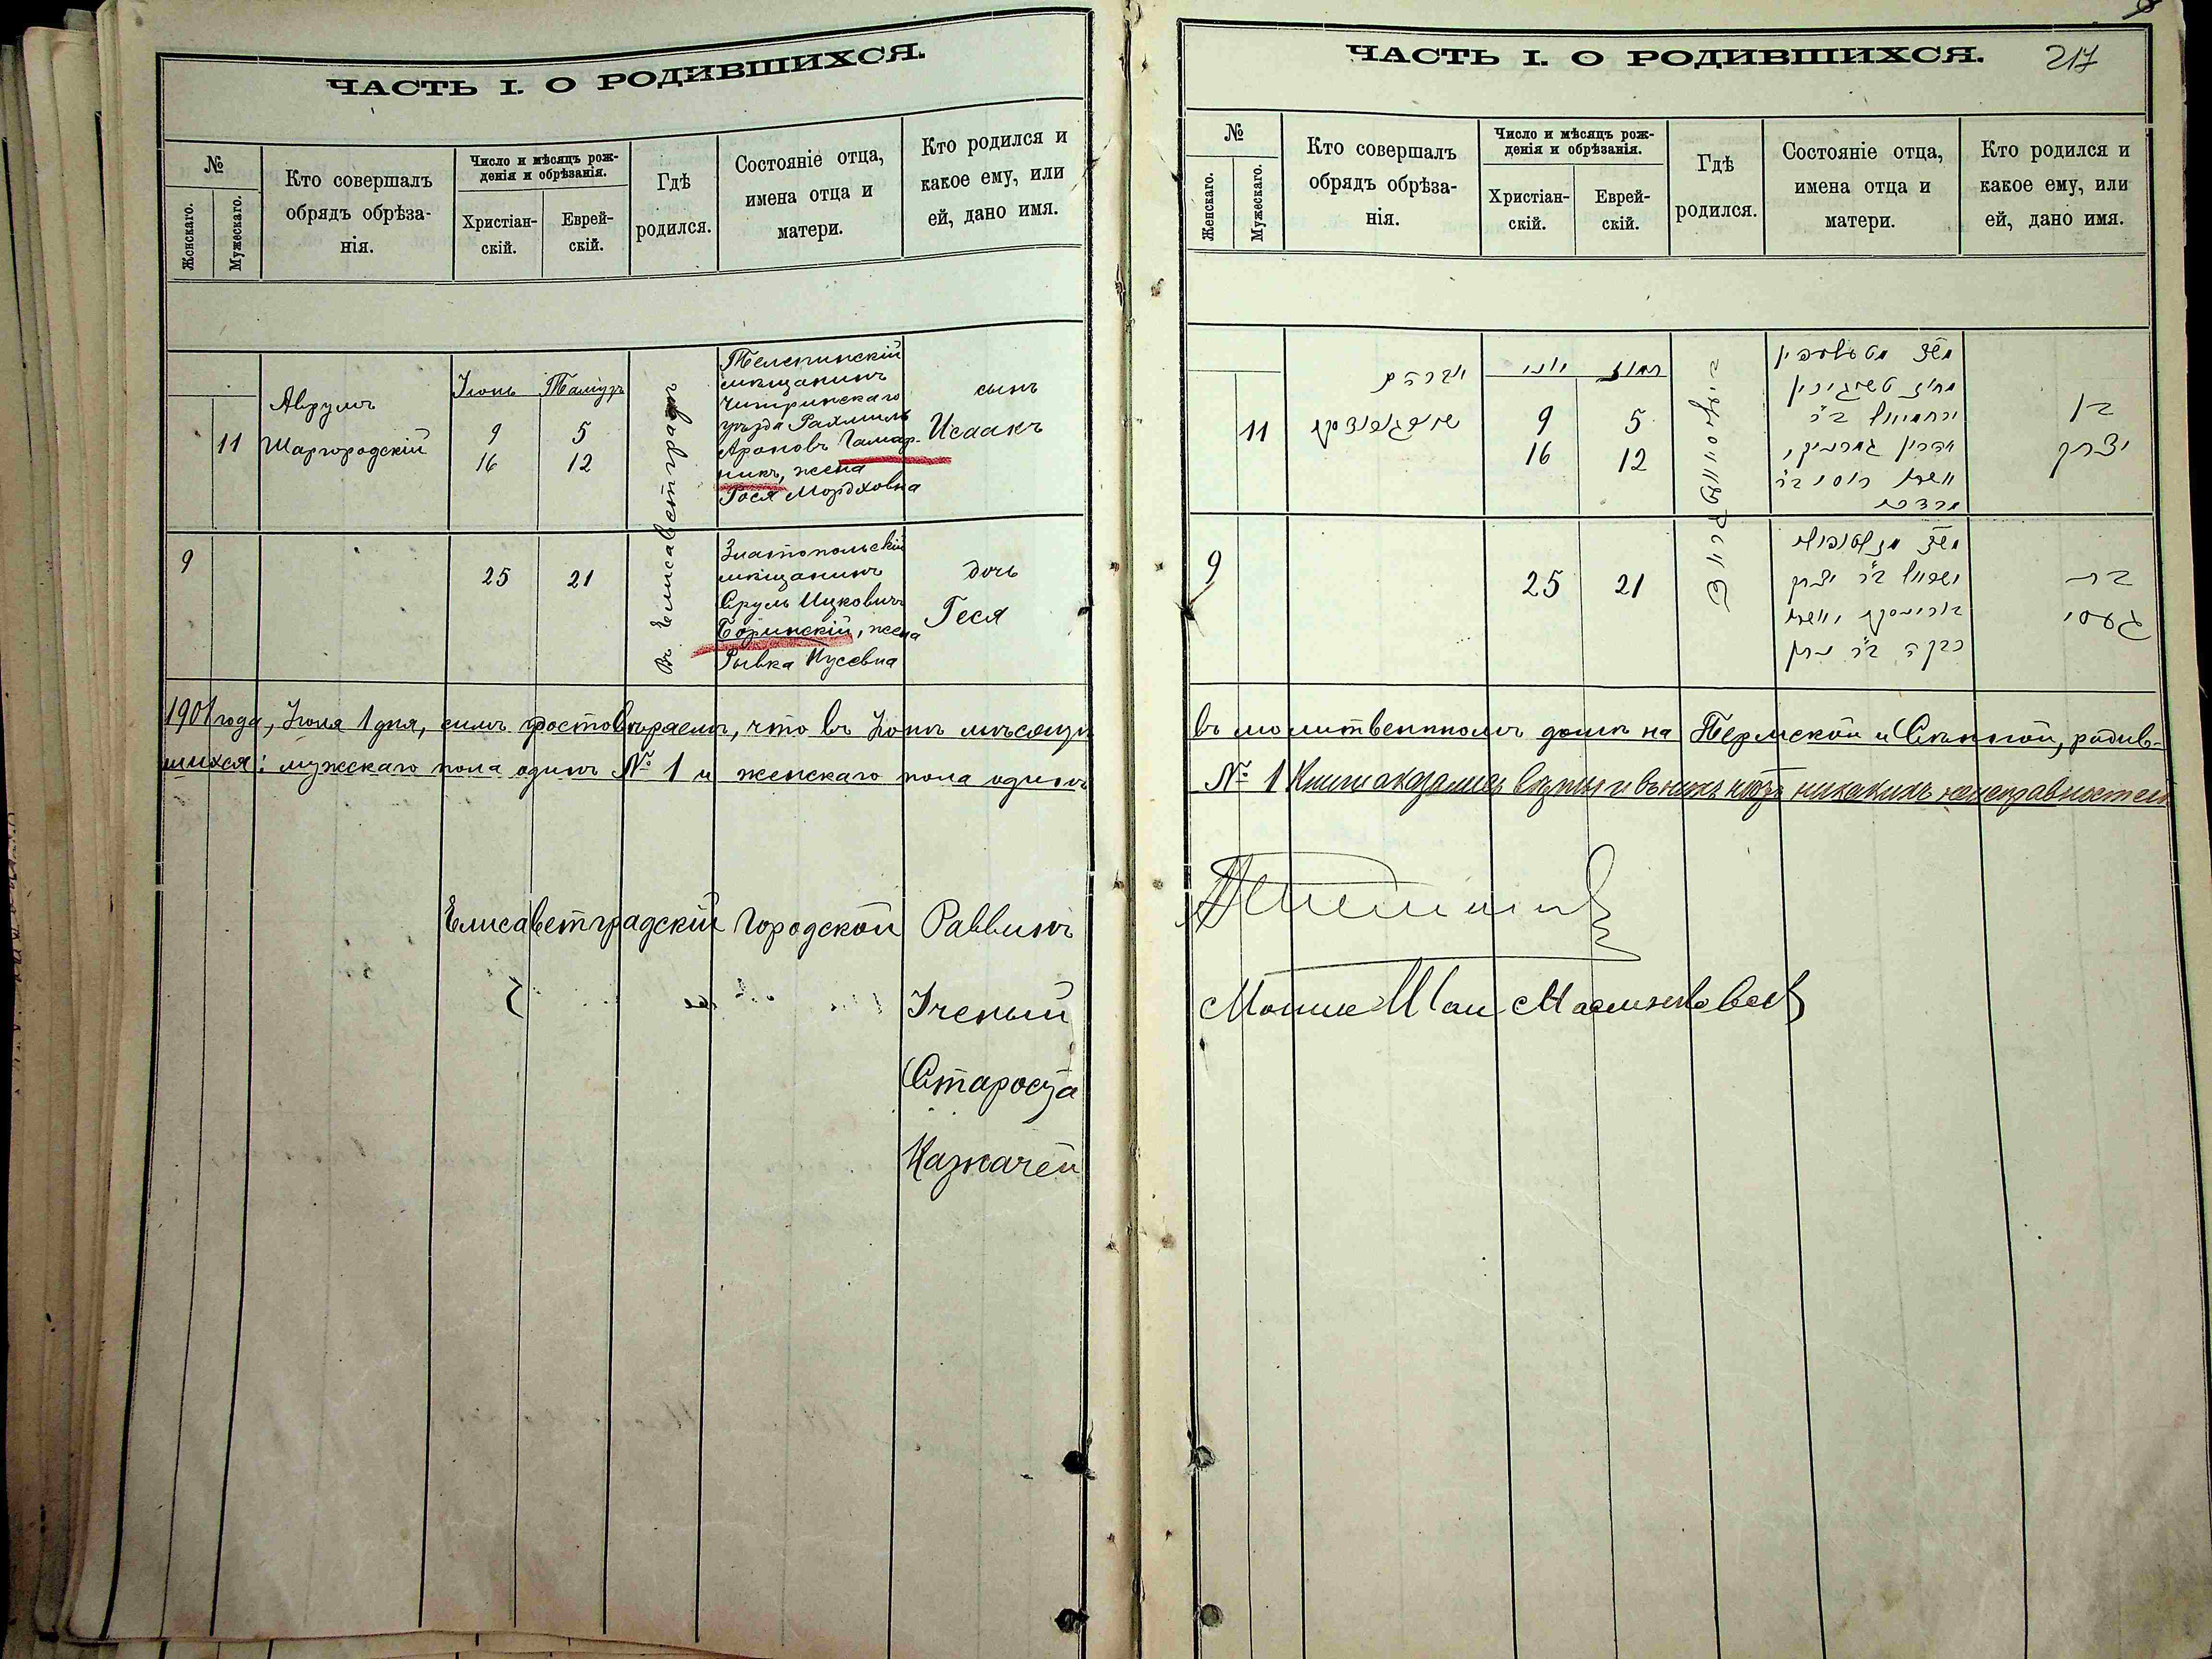 ЧАСТЬ I. О РОДИВШИХСЯ.
№
Женскаго.
Мужескаго.
Кто совершалъ
обрядъ обрѣза-
нія.
Число и мѣсяцъ рож-
денія и обрѣзанія.
Христіан-
скій.
Еврей-
скій.
Гдѣ
родился.
Состояніе отца,
имена отца и
матери.
Кто родился и
какое ему, или
ей, дано имя.
11
Аврумъ
Шаргородскій
Іюнь
9
16
Тамузъ
5
12
Въ Елисаветградѣ
Телепинскій
мѣщанинъ
Чигринскаго
уѣзда Рахмиль
Ароновъ Гамар-
никъ, жена
Рося Мордховна
сынъ
Исаакъ
9
25
21
Златопольскій
мѣщанинъ
Сруль Ицковичъ
Боринскій, жена
Рывка Нусевна
дочь
Геся
1901 года, Іюля 1 дня, симъ удостовѣряемъ, что въ Іюнѣ мѣсяцѣ
шихся: мужскаго пола одинъ № 1 и женскаго пола одинъ
Елисаветградскій Городской Раввинъ
Ученый
Староста
Казначей
ЧАСТЬ I. О РОДИВШИХСЯ.
217
№
Женскаго.
Мужескаго.
Кто совершалъ
обрядъ обрѣза-
нія.
Число и мѣсяцъ рож-
денія и обрѣзанія.
Христіан-
скій.
Еврей-
скій.
Гдѣ
родился.
Состояніе отца,
имена отца и
матери.
Кто родился и
какое ему, или
ей, дано имя.
11
אברהם
שארגאראדסקי
יוני
9
16
תמוז
5
12
ירחמיאל ב״ר
אהרן גאמארניק,
מרדכי
בן
יצחק
9
25
21
ישראל ב״ר יצחק
רבקה ב״ר
בת
געסי
въ молитвенномъ домѣ на Пермской и Сѣнной, родив-
№ 1 Книги оказались вѣрны и въ нихъ нѣтъ никакихъ неисправностей